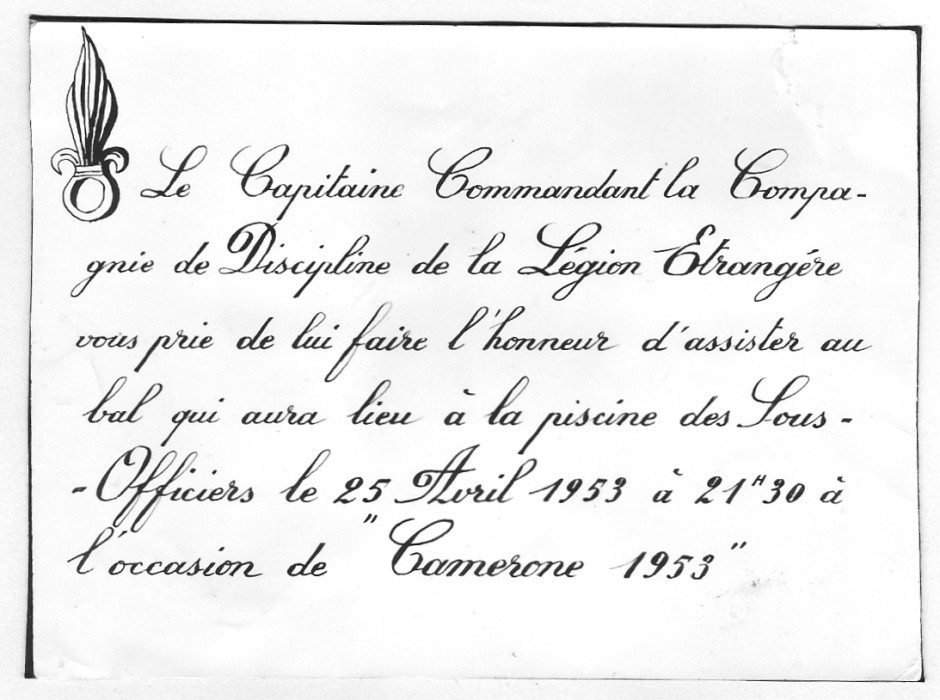 Le Capitaine Commandant la Compa-
gnie de Discipline de la Légion Etrangére
vous prie de lui faire l'honneur d'assister au
bal qui aura lieu à la piscine des Sous-
-Officiers le 25 Avril 1953 à 21H30 à
l'occasion de "Camerone 1953"